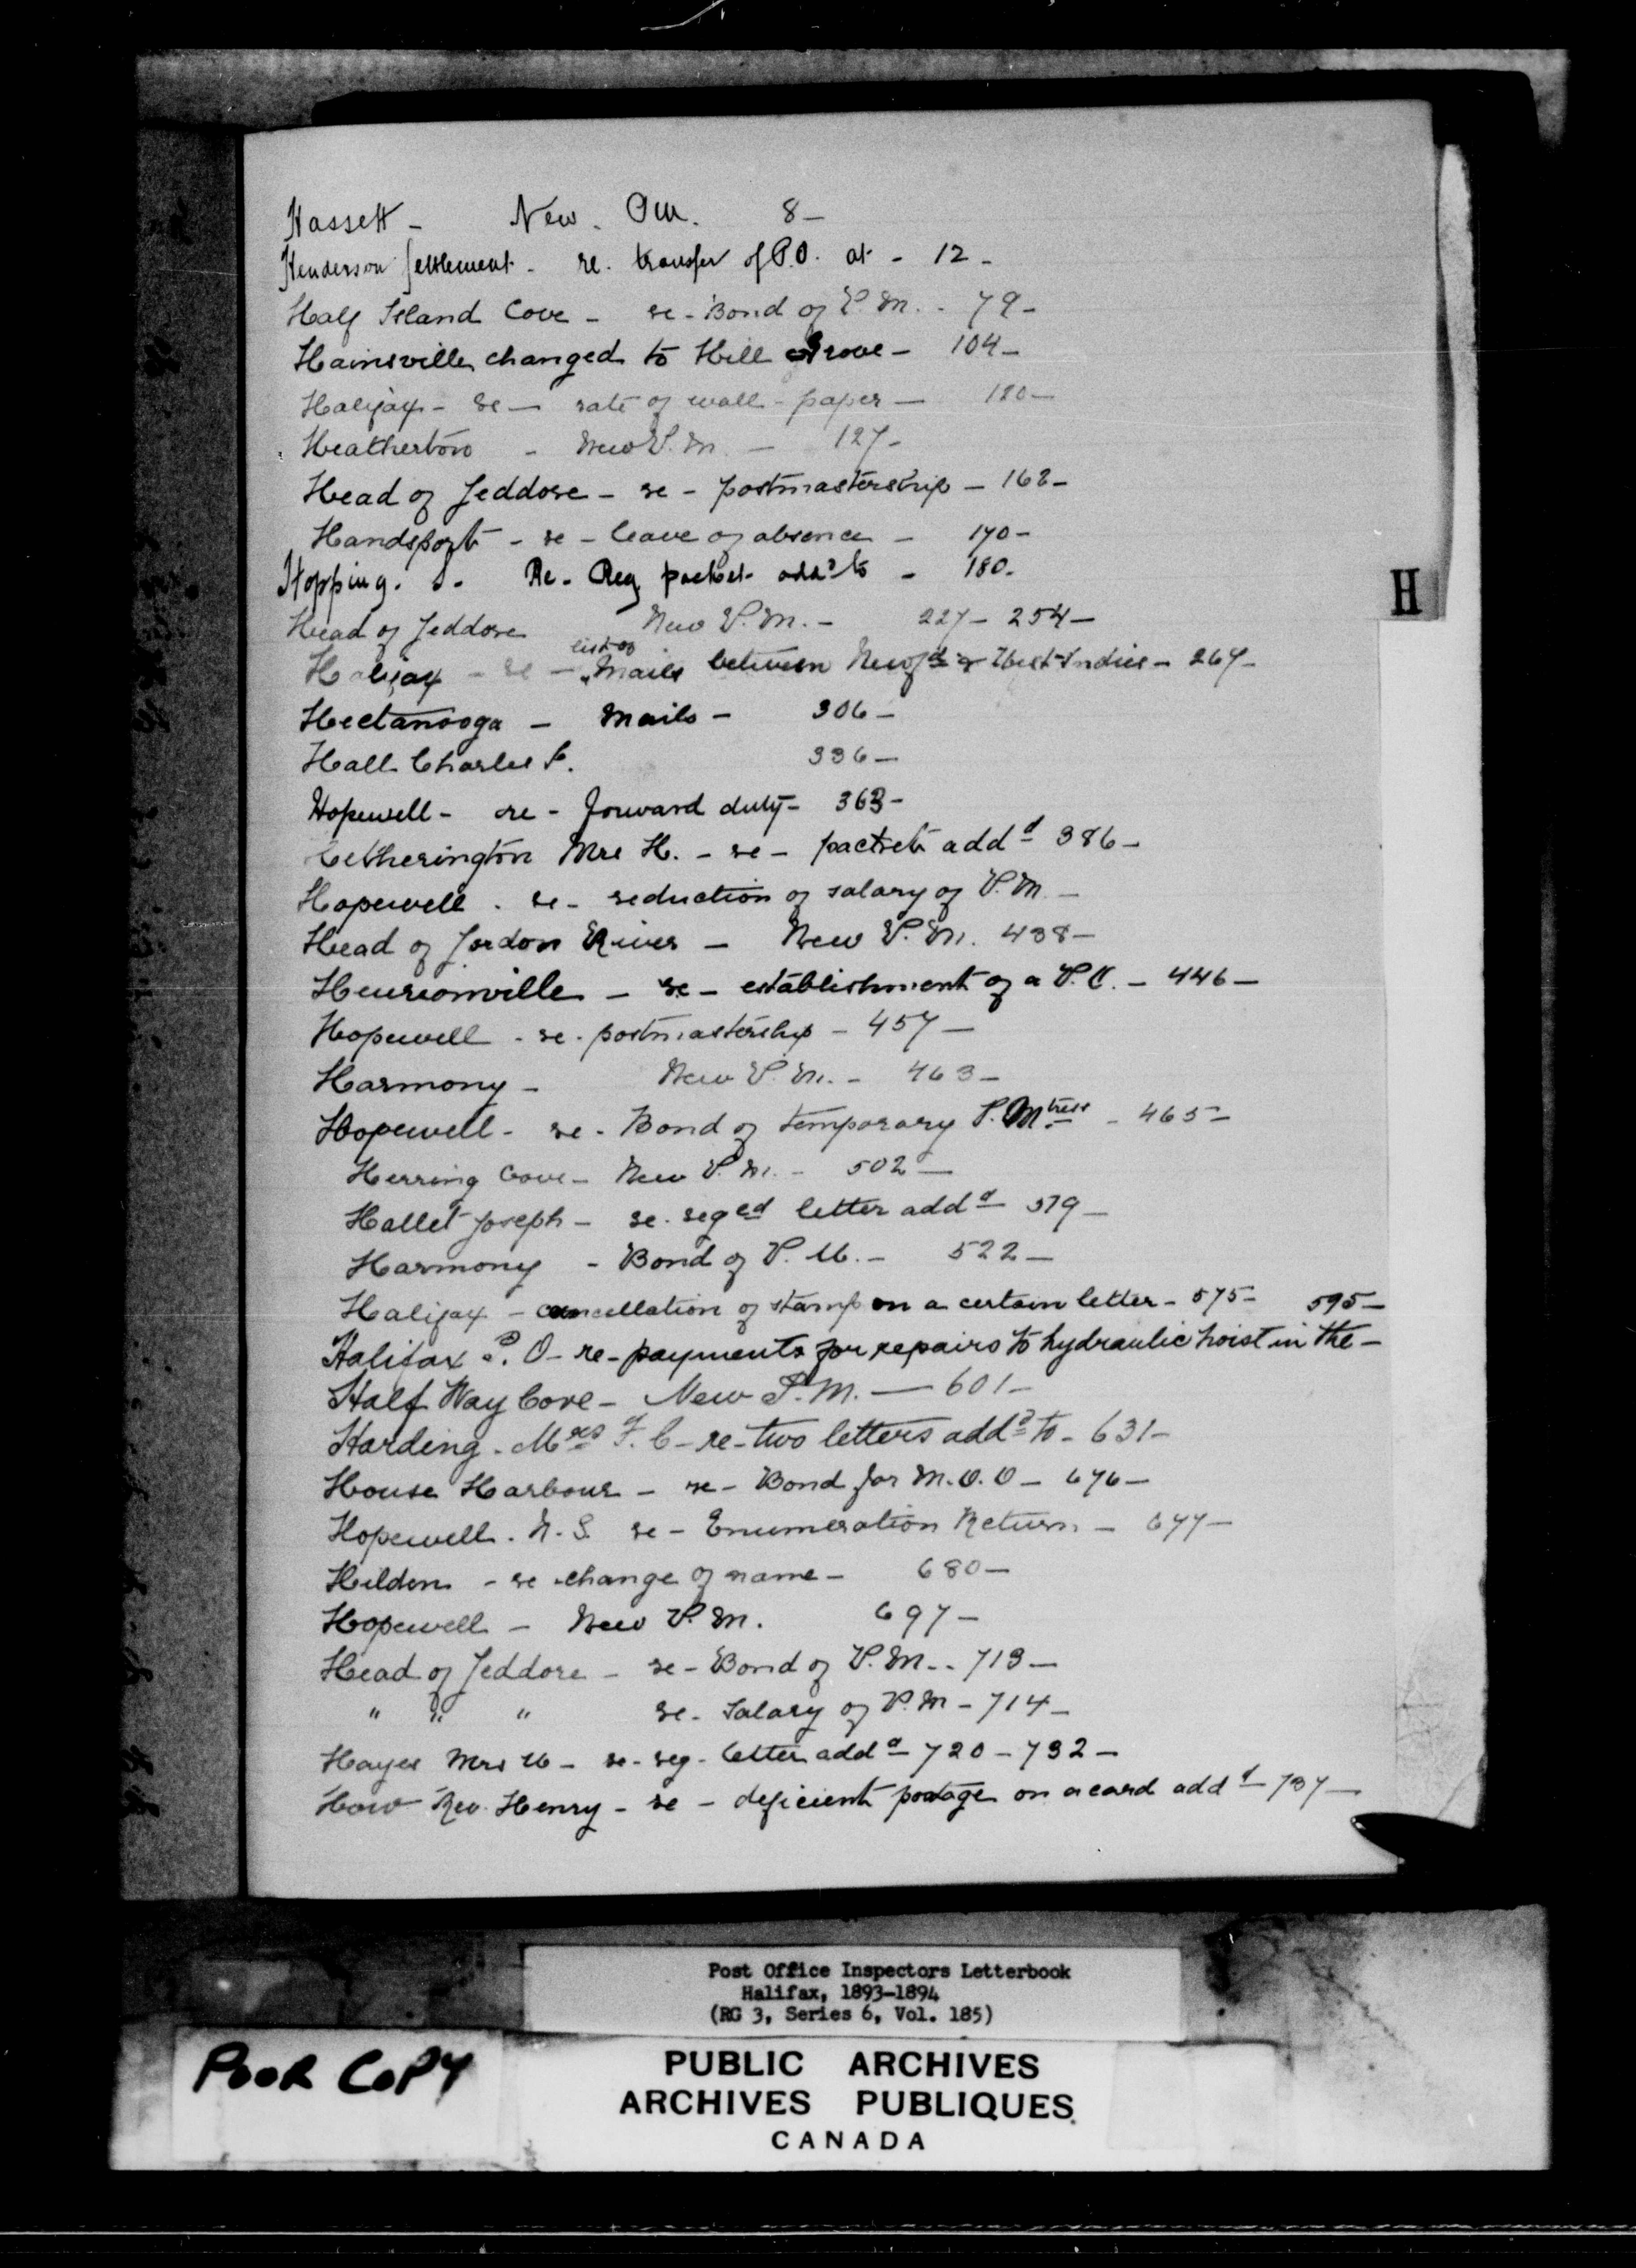 Hassett - New P.M. 8 -
Henderson Settlement - re. transfer of P.O. at - 12 -
Half Island Cove - re - Bond of P.M. - 79 -
Hainsville changed to Hill Grove - 104 -
Halifax - re - rate of wall-paper - 120 -
Heatherton - New P.M. - 127 -
Head of Jeddore - re - postmastership - 162 -
Handsport - re - leave of absence - 170 -
Hopping. S. Re - Reg packet addd to - 180 -
Head of Jeddore New P.M. - 227 - 254 -
Halifax - re - list of Mails between Newfd & West-Indies - 267 -
Hectanooga - Mails - 306 -
Hall Charles F. 336 -
Hopewell - re - forward duty - 363 -
Hetherington Mrs H. - re - packet addd 386 -
Hopewell - re - reduction of salary of P.M. -
Head of Jordon River - New P.M. 438 -
Heusionville - re - establishment of a P.O. - 446 -
Hopewell - re - postmastership - 457 -
Harmony - New P.M. - 463 -
Hopewell - re - Bond of temporary P.Mtress - 465 -
Herring Cove - New P.M. - 502 -
Hallet Joseph - re. reged letter addd 519 -
Harmony - Bond of P.M. - 522 -
Halifax - cancellation of stamp on a certain letter - 575 - 595 -
Halifax P.O - re - payments for repairs to hydraulic hoist in the -
Half Way Cove - New P.M. - 601 -
Harding - Mrs F. C - re - two letters addd to - 631 -
House Harbour - re - Bond for M.O.O - 676 -
Hopewell. N.S. re - Enumeration Return - 677 -
Hilden - re change of name - 680 -
Hopewell - New P.M. 697 -
Head of Jeddore - re - Bond of P.M. - 713 -
" " " re - Salary of P.M - 714 -
Hayes Mrs M - re - reg - letter addd 720 - 732 -
How Rev. Henry - re - deficient postage on a card addd 737 -
H
Post Office Inspectors Letterbook
Halifax, 1893-1894
(RG 3, Series 6, Vol. 185)
POOR COPY
PUBLIC ARCHIVES
ARCHIVES PUBLIQUES
CANADA